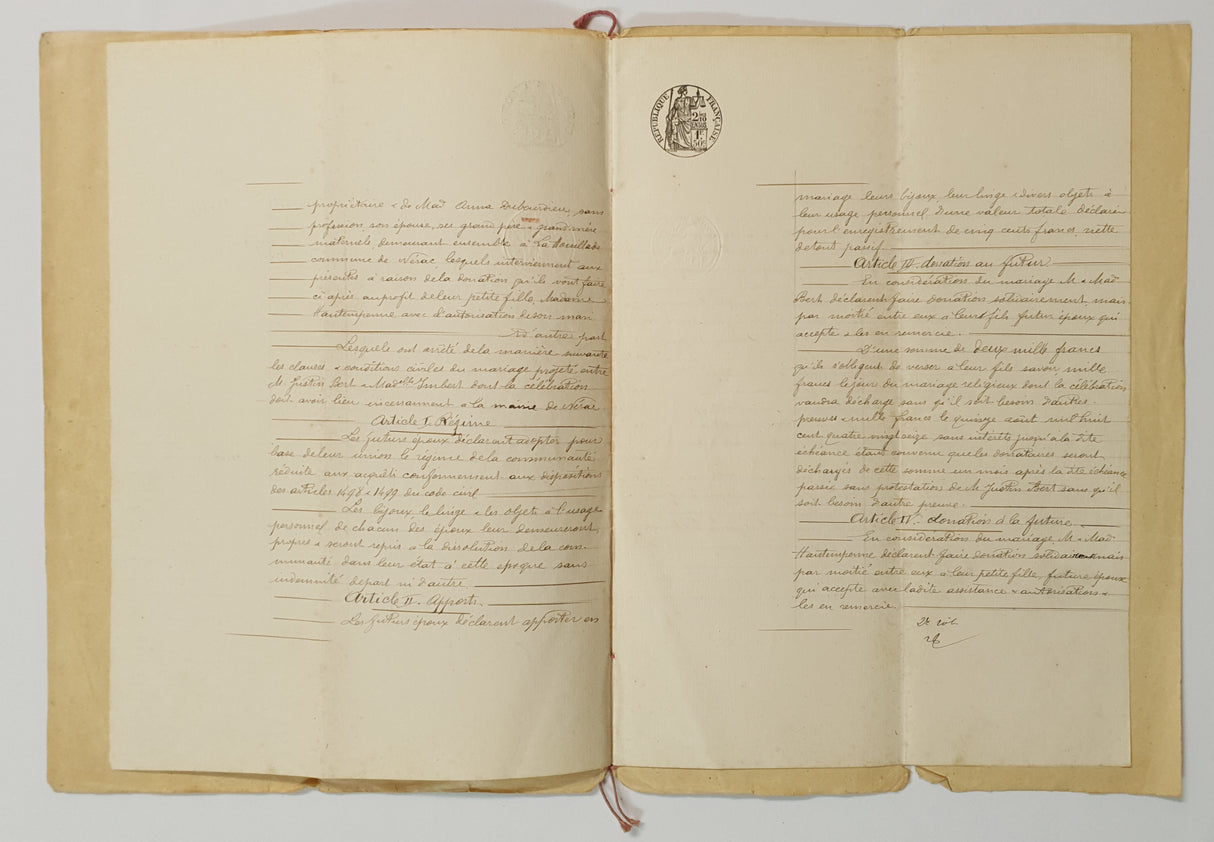 propriétaire & de Mad Anna sans
profession son épouse, ses grand père & grand mère
maternels, demeurant ensemble à La
commune de Nérac lesquels interviennent aux
présentes à raison de la donation qu'ils vont faire
ci après au profit de leur petite fille, Madame
Hautemponne avec l'autorisation de son mari
D'autre part
Lesquels ont arrêté de la manière suivante
les clauses & conditions civiles du mariage projeté entre
M Justin Bert & Mad.elle Imbert dont la célébration
doit avoir lieu incessamment à la mairie de Nérac
Article I. Régime
Les futurs époux déclarent adopter pour
base de leur union le régime de la communauté
réduite aux acquêts conformément aux dispositions
des articles 1498 & 1499 du code civil
Les bijoux le linge & les objets à l'usage
personnel de chacun des époux leur demeureront
propres & seront repris à la dissolution de la com-
munauté dans leur état à cette époque sans
indemnité de part ni d'autre
Article II. Apports.
Les futurs époux déclarent apporter en
RÉPUBLIQUE FRANÇAISE
2/10 EN SUS
1F.
50C.
mariage leurs bijoux leur linge & divers objets à
leur usage personnel d'une valeur totale déclarée
pour l'enregistrement de cinq cents francs, nette
de tout passif
Article III. donation au futur
En considération du mariage M & Mad
Bert déclarent faire donation solidairement mais
par moitié entre eux à leur fils futur époux qui
accepte & les en remercie.
D'une somme de deux mille francs
qu'ils s'obligent de verser à leur fils savoir mille
francs le jour du mariage religieux dont la célébration
vaudra décharge sans qu'il soit besoin d'autres
preuves & mille francs le quinze août mil huit
cent quatre vingt seize sans intérêts jusqu'à la dite
échéance étant convenu que les donataires seront
déchargés de cette somme un mois après la dite échéance
passée sans protestation de M Justin Bert sans qu'il
soit besoin d'autre preuve.
Article IV. donation à la future
En considération du mariage M & Mad
Hautemponne déclarent faire donation solidairement mais
par moitié entre eux à leur petite fille, future épouse
qui accepte avec ladite assistance & autorisation &
les en remercie